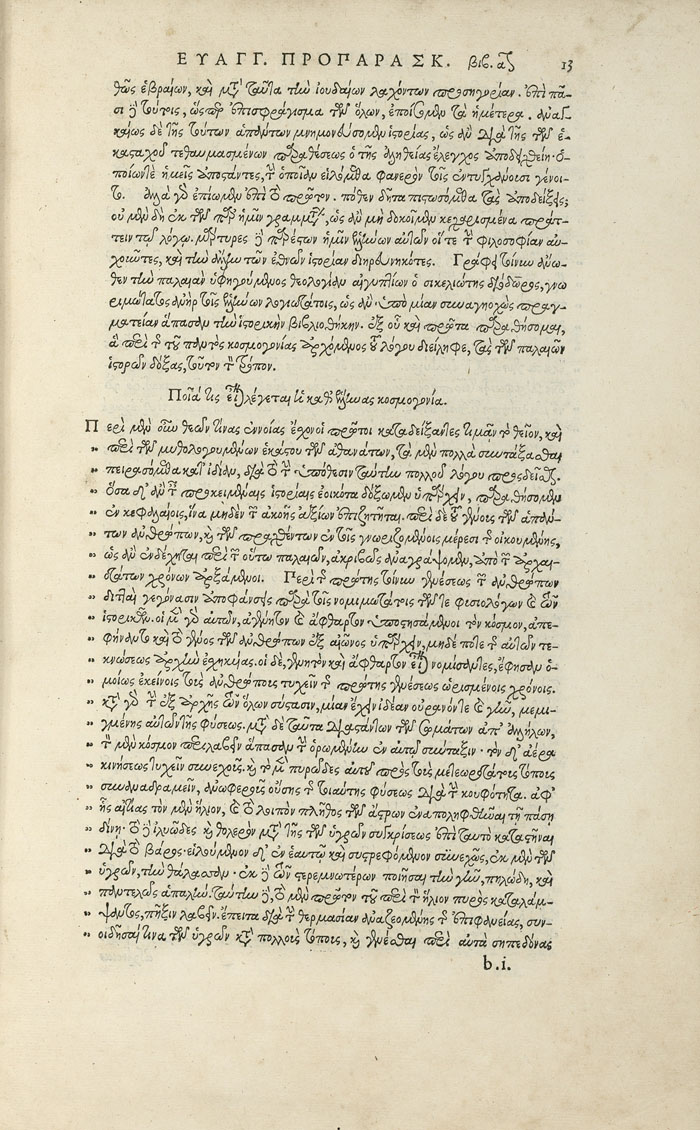 ΕΥΑΓΓ. ΠΡΟΠΑΡΑΣΚ. βιβ. αον 13
θῶς ἑβραίων, καὶ μετὰ ταῦτα τὴν ἰουδαίων λαχόντων προσηγορίαν. ἐπὶ πᾶ-
σι δὲ τούτοις, ὥσπερ ἐπισφράγισμα τῶν ὅλων, ἐποίσομεν τὰ ἡμέτερα. ἀναγ-
καίως δὲ τῆς τούτων ἁπάντων μνημονεύσομεν ἱστορίας, ὡς ἂν διὰ τῆς τῶν ἑ-
κασταχοῦ τεθαυμασμένων παραθέσεως ὁ τῆς ἀληθείας ἔλεγχος ἀποδειχθείη. ὁ-
ποίων τε ἡμεῖς ἀποστάντες, τὴν ὁποίαν εἱλόμεθα φανερὸν τοῖς ἐντυγχάνουσι γένοι-
το. ἀλλὰ γὰρ ἐπίωμεν ἐπὶ τὸ πρῶτον. πόθεν δῆτα πιστωσόμεθα τὰς ἀποδείξεις;
οὐ μὲν δὴ ἐκ τῶν παρ' ἡμῖν γραμμάτων, ὡς ἂν μὴ δοκοῖμεν κεχαρισμένα πράτ-
τειν τῷ λόγῳ. μάρτυρες δὲ παρέστων ἡμῖν ἑλλήνων αὐτῶν οἵ τε τὴν φιλοσοφίαν αὐ-
χοῦντες, καὶ τὴν ἄλλην τῶν ἐθνῶν ἱστορίαν διηρευνηκότες. Γράφει τοίνυν ἄνω-
θεν τὴν παλαιὰν ὑφηγούμενος θεολογίαν αἰγυπτίων ὁ σικελιώτης διόδωρος, γνω
ριμώτατος ἀνὴρ τοῖς ἑλλήνων λογιωτάτοις, ὡς ἂν ὑπὸ μίαν συναγηοχὼς πραγ-
ματείαν ἅπασαν τὴν ἱστορικὴν βιβλιοθήκην. ἐξ οὗ καὶ πρῶτα παραθήσομαι,
ἃ περὶ τῆς τοῦ παντὸς κοσμογονίας ἀρχόμενος τοῦ λόγου διείληφε, τὰς τῶν παλαιῶν
ἱστορῶν δόξας, τοῦτον τὸν τρόπον.
Ποία τις εἶναι λέγεται ἡ καθ' ἕλληνας κοσμογονία.
Περὶ μὲν οὖν θεῶν τίνας ἐννοίας ἔσχον οἱ πρῶτοι καταδείξαντες τιμᾶν τὸ θεῖον, καὶ
" περὶ τῶν μυθολογουμένων ἑκάστου τῶν ἀθανάτων, τὰ μὲν πολλὰ συντάξασθαι
" πειρασόμεθα κατ' ἰδίαν, διὰ τὸ τὴν ὑπόθεσιν ταύτην πολλοῦ λόγου προσδεῖσθαι.
" ὅσα δ' ἂν ταῖς προκειμέναις ἱστορίαις ἐοικότα δόξωμεν ὑπάρχειν, παραθήσομεν
" ἐν κεφαλαίοις, ἵνα μηδὲν τῶν ἀκοῆς ἀξίων ἐπιζητῆται. περὶ δὲ τοῦ γένους τῶν ἁπάν-
" των ἀνθρώπων, καὶ τῶν πραχθέντων ἐν τοῖς γνωριζομένοις μέρεσι τῆς οἰκουμένης,
" ὡς ἂν ἐνδέχηται περὶ τῶν οὕτω παλαιῶν, ἀκριβῶς ἀναγράψομεν, ἀπὸ τῶν ἀρχαι-
" οτάτων χρόνων ἀρξάμενοι. Περὶ τῆς πρώτης τοίνυν γενέσεως τῶν ἀνθρώπων
" διτταὶ γεγόνασιν ἀποφάνσεις παρὰ τοῖς νομιμωτάτοις τῶν τε φυσιολόγων καὶ τῶν
" ἱστορικῶν. οἱ μὲν γὰρ αὐτῶν, ἀγένητον καὶ ἄφθαρτον ὑποστησάμενοι τὸν κόσμον, ἀπε-
" φήναντο καὶ τὸ γένος τῶν ἀνθρώπων ἐξ αἰῶνος ὑπάρχειν, μηδέ ποτε τῆς αὐτῶν τε-
" κνώσεως ἀρχὴν ἐσχηκυίας. οἱ δὲ, γενητὸν καὶ ἄφθαρτον εἶναι νομίσαντες, ἔφησαν ὁ-
" μοίως ἐκείνοις τοὺς ἀνθρώπους τυχεῖν τῆς πρώτης γενέσεως ὡρισμένοις χρόνοις.
" κατὰ γὰρ τὴν ἐξ ἀρχῆς τῶν ὅλων σύστασιν, μίαν ἔχειν ἰδέαν οὐρανόν τε καὶ γῆν, μεμι-
" γμένης αὐτῶν τῆς φύσεως. μετὰ δὲ ταῦτα διαστάντων τῶν σωμάτων ἀπ' ἀλλήλων,
" τὸν μὲν κόσμον περιλαβεῖν ἅπασαν τὴν ὁρωμένην ἐν αὐτῷ σύνταξιν. τὸν δ' ἀέρα
" κινήσεως τυχεῖν συνεχοῦς. καὶ τὸ μὲν πυρῶδες αὐτοῦ πρὸς τοὺς μετεωροτάτους τόπους
" συνδραμεῖν, ἀνωφεροῦς οὔσης τῆς τοιαύτης φύσεως διὰ τὴν κουφότητα. ἀφ'
" ἧς αἰτίας τὸν μὲν ἥλιον, καὶ τὸ λοιπὸν πλῆθος τῶν ἄστρων ἐναποληφθῆναι τῇ πάσῃ
" δίνῃ. τὸ δὲ ἰλυῶδες καὶ θολερὸν μετὰ τῆς τῶν ὑγρῶν συγκρίσεως ἐπὶ ταυτὸ καταστῆναι
" διὰ τὸ βάρος. εἱλούμενον δ' ἐν ἑαυτῷ καὶ συστρεφόμενον συνεχῶς, ἐκ μὲν τῶν
" ὑγρῶν, τὴν θάλασσαν. ἐκ δὲ τῶν στερεμνιωτέρων ποιῆσαι τὴν γῆν, πηλώδη, καὶ
" παντελῶς ἁπαλήν. ταύτην δὲ, τὸ μὲν πρῶτον τοῦ περὶ τὸν ἥλιον πυρὸς καταλάμ-
" ψαντος, πῆξιν λαβεῖν. ἔπειτα διὰ τὴν θερμασίαν ἀναζεομένης τῆς ἐπιφανείας, συν-
" οιδῆσαί τινα τῶν ὑγρῶν κατὰ πολλοὺς τόπους, καὶ γενέσθαι περὶ αὐτὰ σηπεδόνας
b.i.